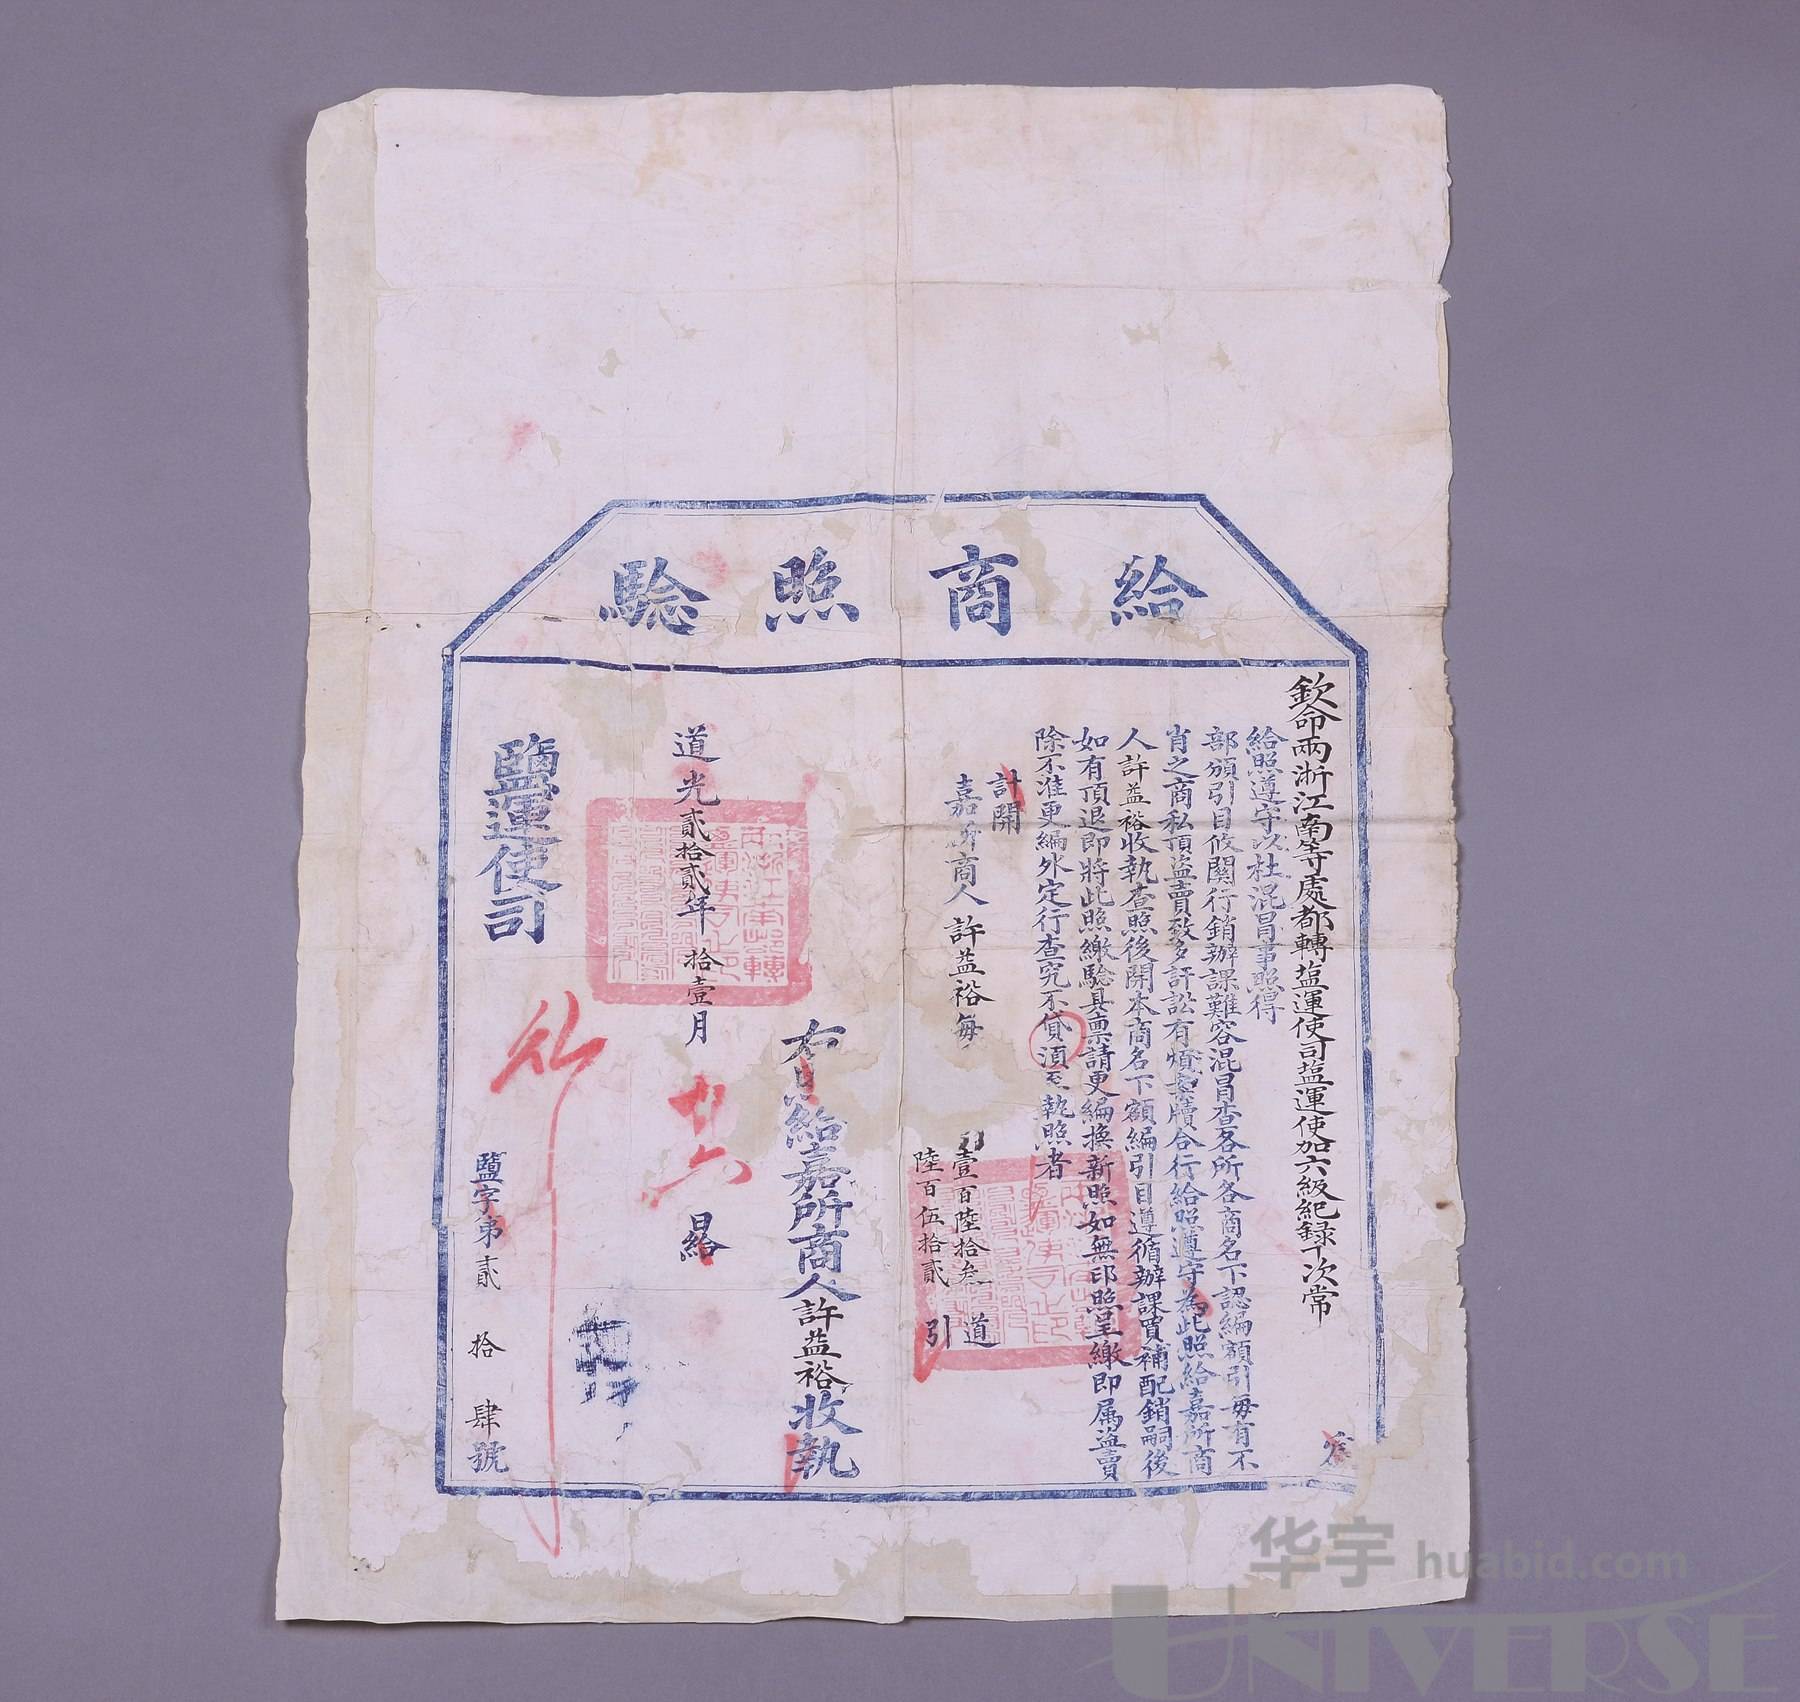 給商照驗
欽命兩浙江南等處都轉塩運使司塩運使加六級紀錄十次常 為
給照遵守以杜混冒事照得
部頒引目攸關行銷辦課難容混冒查各所各商名下認編額引毎有不
肖之商私頂盜賣致多訐訟有煩案牘合行給照遵守為此照給嘉所商
人許益裕收執查照後開本商名下額編引目遵循辦課買補配銷嗣後
如有頂退即將此照繳驗具稟請更編換新照如無印照呈繳即属盜賣
除不准更編外定行查究不貸須至執照者
計開
嘉所商人 許益裕 每 壹百陸拾叁道
陸百伍拾貳引
右給嘉所商人許益裕收執
道光貳拾貳年拾壹月廿六日給
鹽運使司
鹽字第貳拾肆號
华宇 huabid.com
UNIVERSE